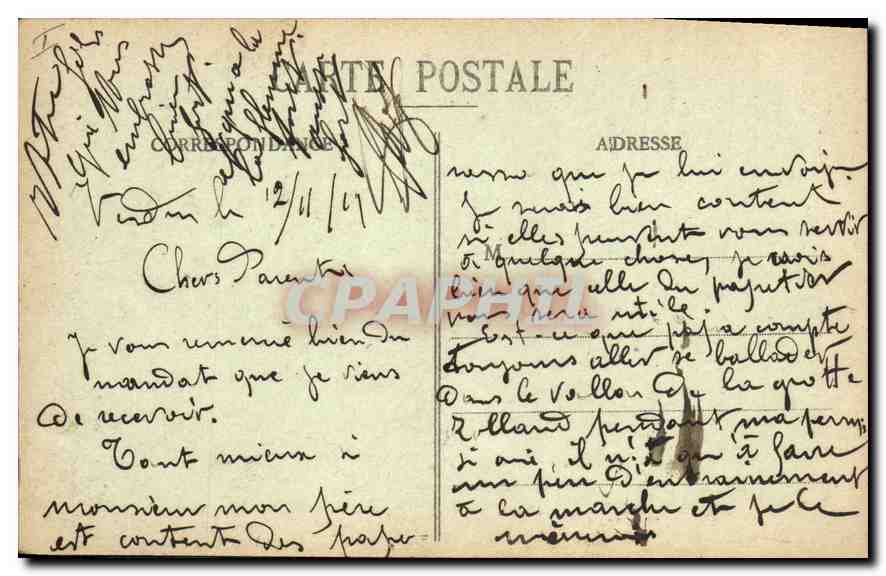 CARTE POSTALE
CORRESPONDANCE
ADRESSE
M
Verdun le 12/11/17
Chers Parents
Je vous remercie bien du
mandat que je viens
de recevoir.
Tant mieux si
monsieur mon père
est content des pape
rasso que je lui envoie.
Je serais bien content
si elles peuvent vous servir
à quelque chose, je crois
bien que celle du papetier
vous sera utile.
Est-ce que papa compte
toujours aller se ballader
dans le vallon de la grotte
Rolland pendant ma permi
si oui, il n'a qu'à faire
un peu d'entrainement
à la marche et je le
mènerais
Votre fils
qui vous
embrasse
bien
fort
CPAPHIL